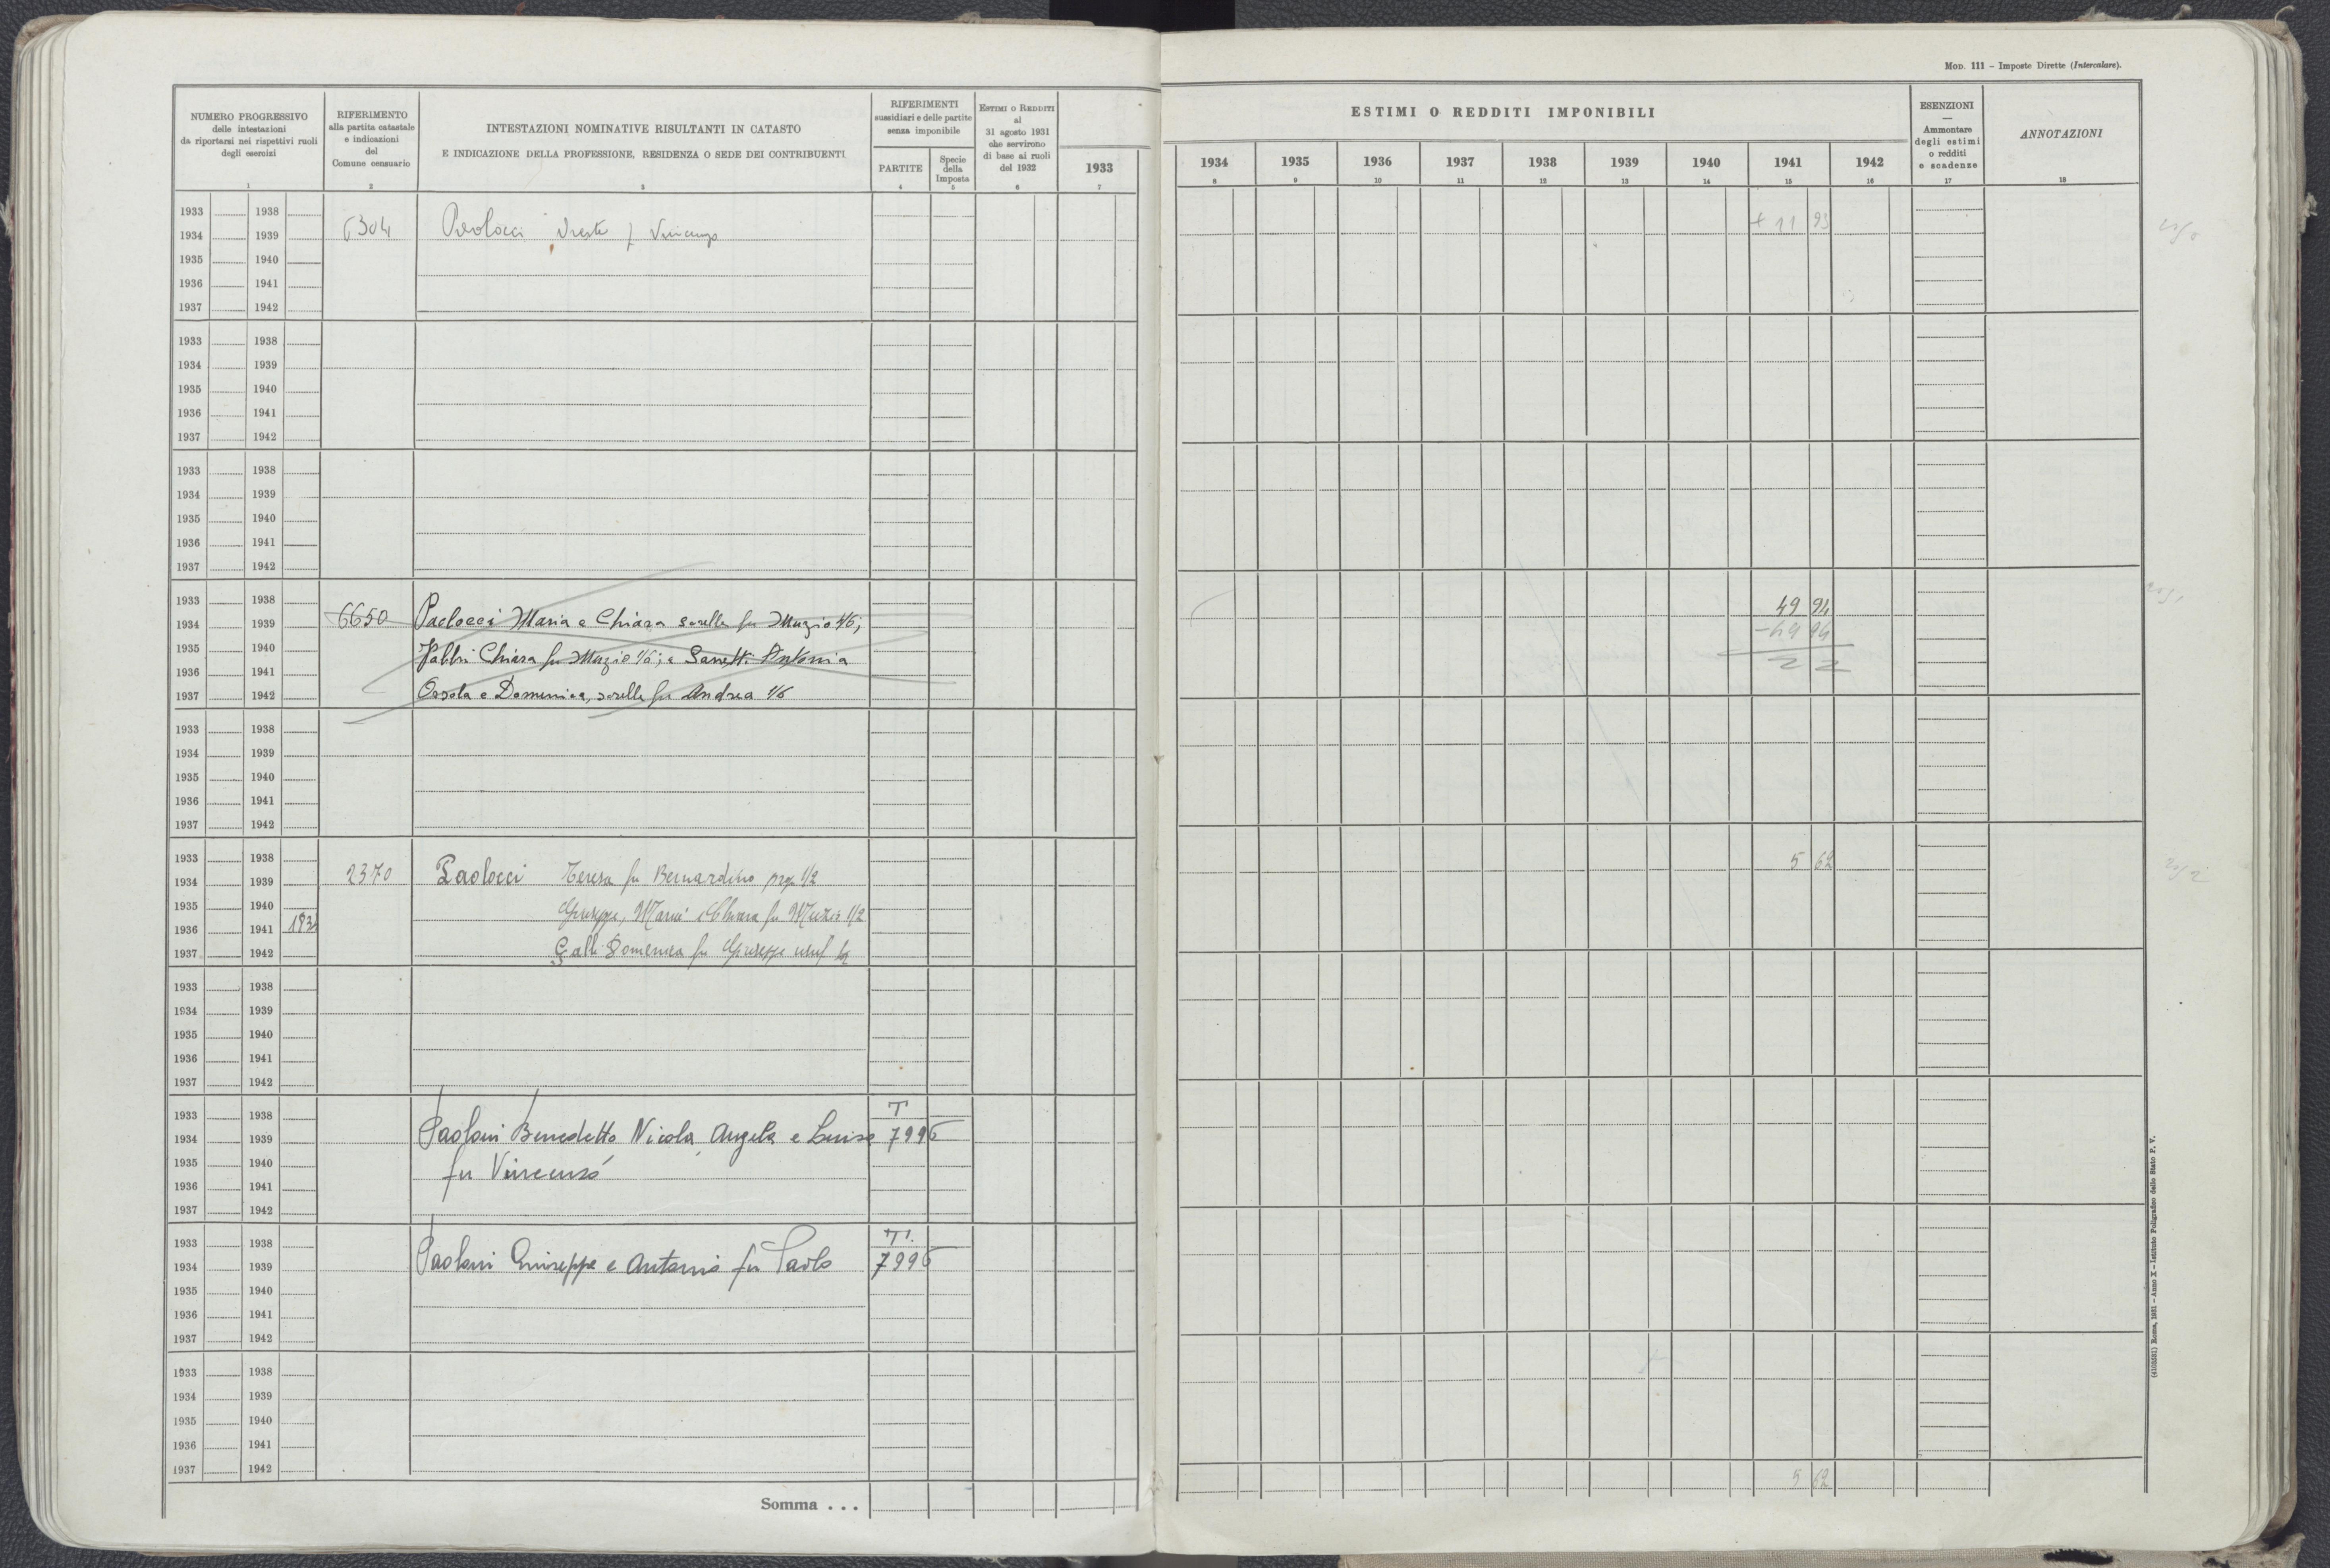 Mod. 111 - Imposte Dirette (Intercalare).
NUMERO PROGRESSIVO
delle intestazioni
da riportarsi nei rispettivi ruoli
degli esercizi
1
RIFERIMENTO
alla partita catastale
e indicazioni
del
Comune censuario
2
INTESTAZIONI NOMINATIVE RISULTANTI IN CATASTO
E INDICAZIONE DELLA PROFESSIONE, RESIDENZA O SEDE DEI CONTRIBUENTI
3
RIFERIMENTI
sussidiari e delle partite
senza imponibile
PARTITE
4
Specie
della
Imposta
5
Estimi o Redditi
al
31 agosto 1931
che servirono
di base ai ruoli
del 1932
6
ESTIMI O REDDITI IMPONIBILI
1933 1934 1935 1936 1937 1938 1939 1940 1941 1942
7 8 9 10 11 12 13 14 15 16
ESENZIONI
—
Ammontare
degli estimi
o redditi
e scadenze
17
ANNOTAZIONI
18
1933 1938
1934 1939 6304 Paolocci Oreste f Vincenzo + 11 93
1935 1940
1936 1941
1937 1942
1933 1938
1934 1939
1935 1940
1936 1941
1937 1942
1933 1938
1934 1939
1935 1940
1936 1941
1937 1942
1933 1938 49 94
1934 1939 6650 Paolocci Maria e Chiara sorelle fu Muzio 4/6; - 49 94
1935 1940 Fabbri Chiara fu Muzio 1/6; e Antonia
1936 1941
1937 1942 Orsola e Domenica, sorelle fu Andrea 1/6
1933 1938
1934 1939
1935 1940
1936 1941
1937 1942
1933 1938 5 62
1934 1939 2370 Paolocci Teresa fu Bernardino prop 1/2
1935 1940 Giuseppe, Maria e Chiara fu Muzio 1/2
1936 1941
1937 1942 Galli Domenica fu Giuseppe usuf
1933 1938
1934 1939
1935 1940
1936 1941
1937 1942
1933 1938 T
1934 1939 Paoloni Benedetto Nicola, Angela e Luisa 7996
1935 1940 fu Vincenzo
1936 1941
1937 1942
1933 1938 T.
1934 1939 Paoloni Giuseppe e Antonio fu Paolo 7996
1935 1940
1936 1941
1937 1942
1933 1938
1934 1939
1935 1940
1936 1941
1937 1942
5 62
Somma . . .
(4103581) Roma, 1931 - Anno X - Istituto Poligrafico dello Stato P. V.